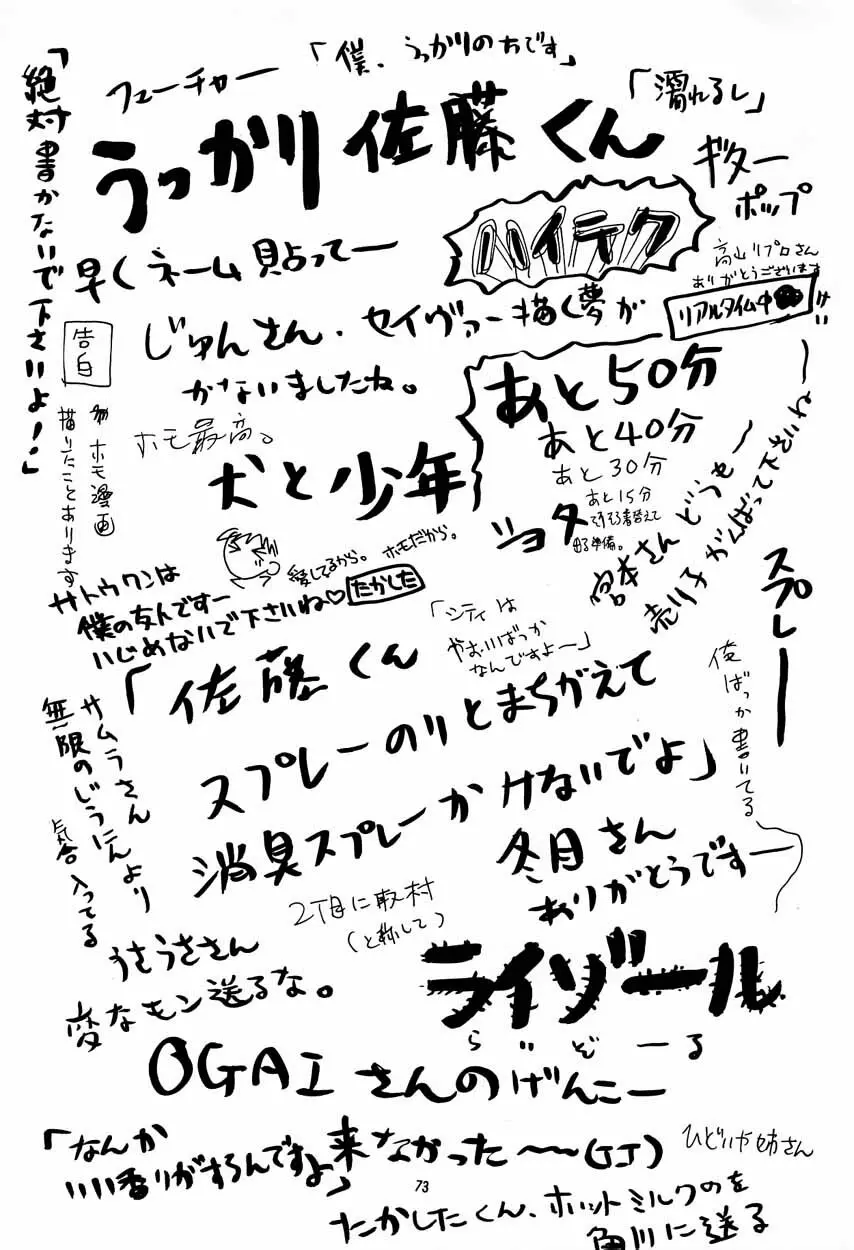 「絶対書かないで下さいよ！」
フューチャー
「僕、うっかりのちです」
「濡れるし」
うっかり佐藤くん
ギター
ポップ
ハイテク
早くネーム貼ってー
高山リプロさん
ありがとうございます
リアルタイム中
じゅんさん、セイヴァー描く夢が
かないましたね。
告白
ホモ漫画
描いたことあります
ホモ最高。
犬と少年
あと50分
あと40分
あと30分
あと15分
そろそろ着替えて
出る準備。
ショタ
愛してるから。ホモだから。
サトウクンは
僕の友人ですー
いじめないで下さいね♡
たかした
宮本さんどうもー
売り子がんばって下さいねー
スプレー
「シティは
やおいばっか
なんですよー」
「佐藤くん
スプレーのりとまちがえて
消臭スプレーかけないでよ」
俺ばっか書いてる
サムラさん
無限のじうにんより
気合入ってる
冬月さん
ありがとうですー
2丁目に取材
(と称して)
うさうささん
変なモン送るな。
ライゾール
らいぞーる
OGAIさんのげんこー
来なかった〜〜(GJ)
「なんか
いい香りがするんですよ」
ひどいや姉さん
73
たかしたくん、ホットミルクのを
角川に送る